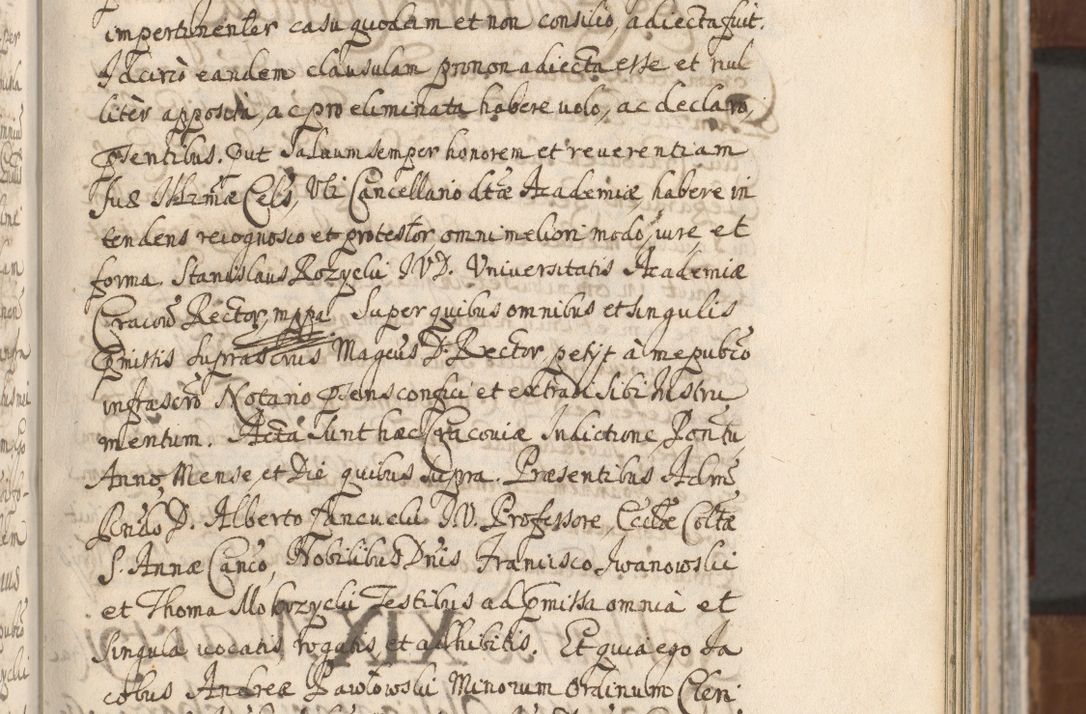 impertinenter casu quodam et non consilio, adiecta fuit.
Idcirco eandem clausulam pro non adiecta esse et nul
liter apposita, ac pro eliminata habere volo, ac declaro,
pŕsentibus. Out Salvum semper honorem et reverentiam
Suæ Illrmæ Cels, Vti Cancellario dtæ Academiæ, habere in
tendens recognosco et protestor omni meliori modo, iure, et
forma. Stanislaus Rozycki IVD. Universitatis Academiæ
Cracou Rector, mppa Super quibus omnibus et singulis
pŕmissis suprascrius Magcus D. Rector, petijt à me pubco
infrascro Notario pŕsens confici et extradi sibi Instru
mentum. Acta Sunt hæc Cracoviæ Indictione, Pontu,
Anno, Mense, et Die quibus supra. Præsentibus Adm
Rndo D. Alberto Jancucki IV. Professore, Ecclæ Coltæ
S. Annæ Canco, Nobilibus Dnis Francisco Jwanowski
et Thoma Mokrzycki Testibus ad pŕmissa omnia et
singula vocatis, rogatis, et adhibitis. Et quia ego Ja
cobus Andreæ Pawłowski Minorum Ordinum Cleri